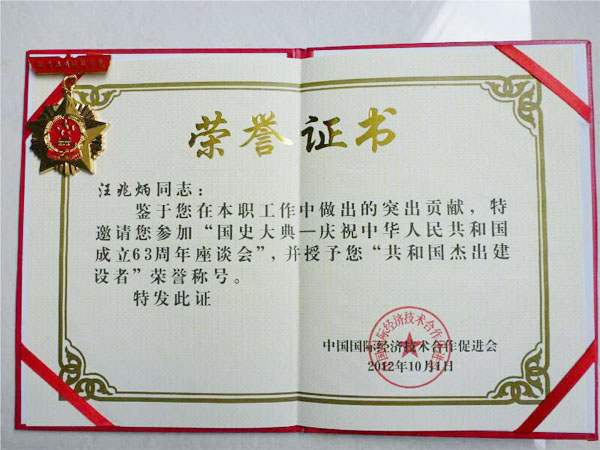 荣誉证书
汪兆炳同志：
鉴于您在本职工作中做出的突出贡献，特
邀请您参加“国史大典—庆祝中华人民共和国
成立63周年座谈会”，并授予您“共和国杰出建
设者”荣誉称号。
特发此证
中国国际经济技术合作促进会
2012年10月1日